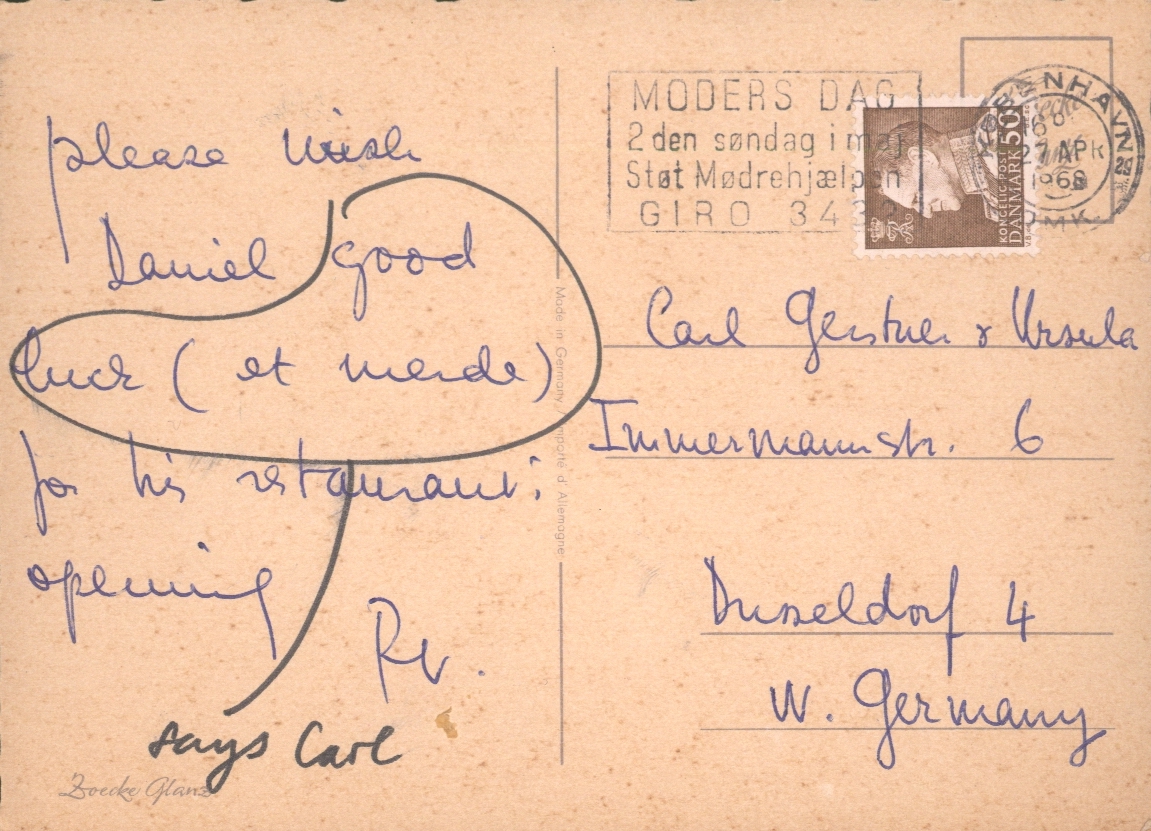 please wish
Daniel good
luck ( et merde )
for his restaurant:
opening
Rv.
says Carl
Zoecke Glanz
MODERS DAG
2 den søndag i maj
Støt Mødrehjælpen
GIRO 343
KØBENHAVN
27 APR
1968
OMK.
KONGELIG POST
DANMARK 50
Made in Germany / Importé d'Allemagne
Carl Gerstner & Ursula
Immermannstr. 6
Dusseldorf 4
W. Germany